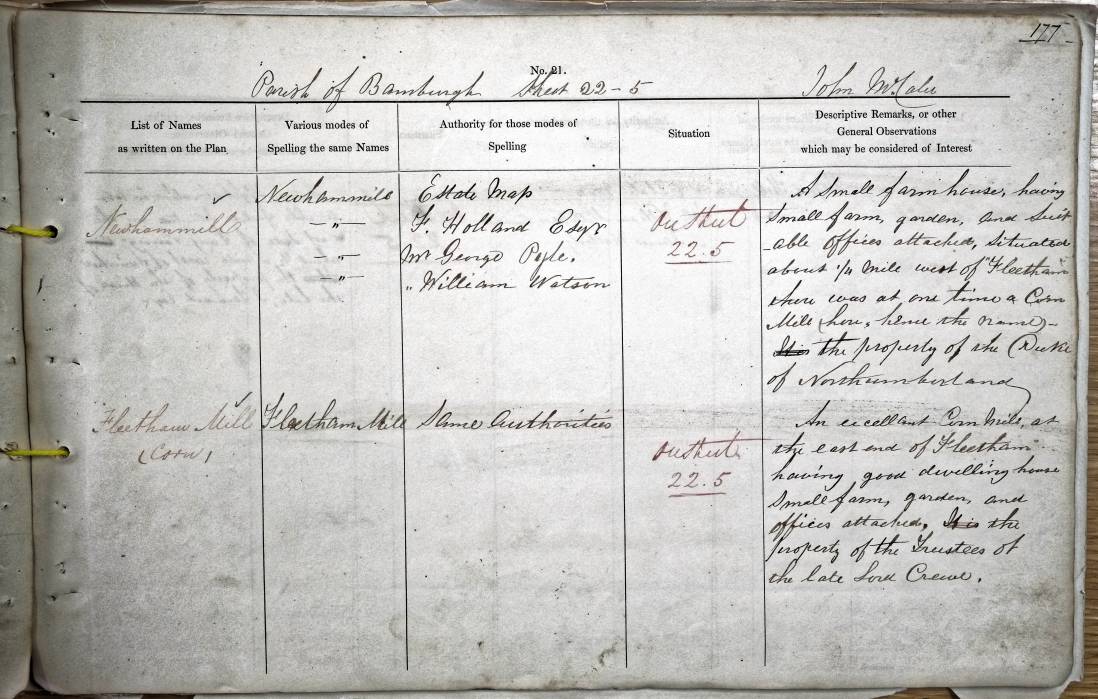 177
No. 21.
Parish of Bamburgh Sheet 22-5 John McCabe
List of Names
as written on the Plan
Various modes of
Spelling the same Names
Authority for those modes of
Spelling
Situation
Descriptive Remarks, or other
General Observations
which may be considered of Interest
Newhammill
Newhammill
—„—
—„—
—„—
Estate Map
F. Holland Esqr
Mr George Pyle.
„ William Watson
On Sheet
22.5
A Small farm house, having
Small farm, garden, and Suit
-able offices attached, Situated
about 1/4 Mile west of "Fleetham"
there was at one time a Corn
Mill here, hence the name) -
It is the property of the Duke
of Northumberland
Fleetham Mill
(Corn)
Fleetham Mill
Same Authorities
On Sheet
22.5
An excellant Corn Mill, at
the east end of Fleetham
having good dwelling house
Small farm, garden, and
offices attached, It is the
property of the Trustees of
the late Lord Crewe.